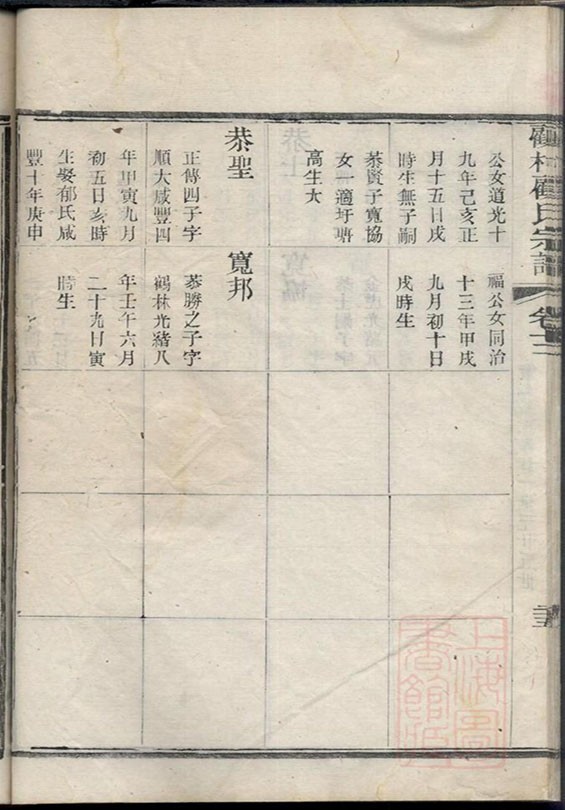 顧氏宗譜
卷十二
公女道光十
九年己亥正
月十五日戌
時生無子嗣
恭賢子寬協
女一適圩塘
高生大
恭聖
正傅四子字
順大咸豐四
年甲寅九月
初五日亥時
生娶郁氏咸
豐十年庚申
福公女同治
十三年甲戌
九月初十日
戌時生
寬邦
恭勝之子字
鶴林光緒八
年壬午六月
二十九日寅
時生
上海圖
書館